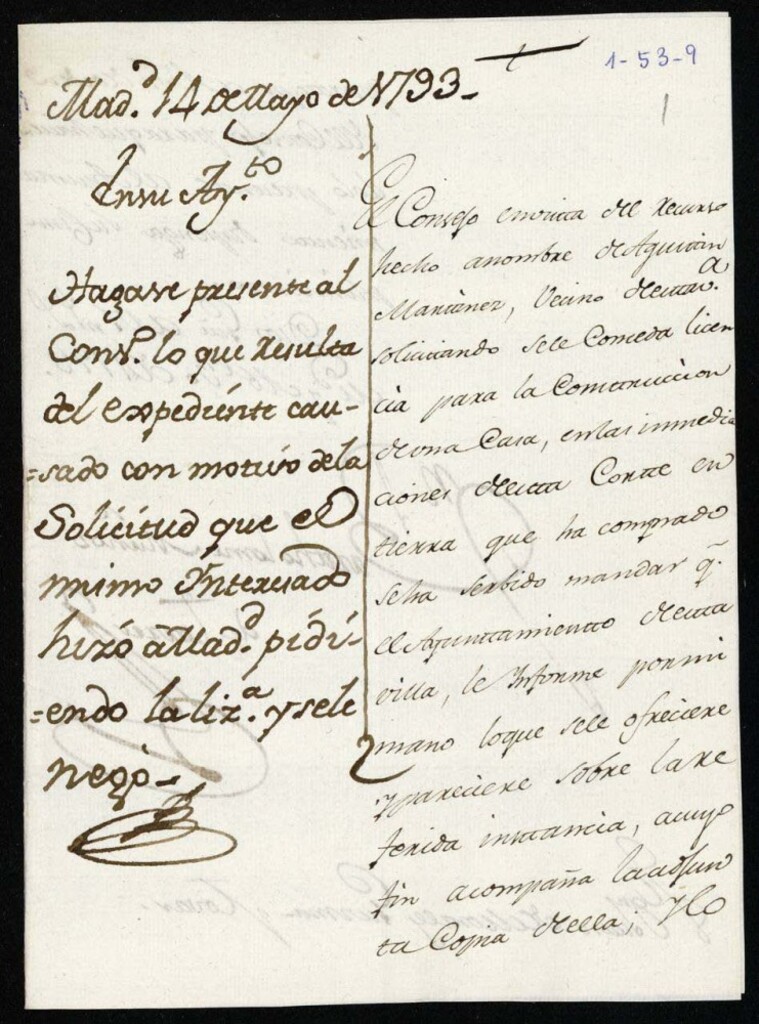 1-53-9
1
Mad.d 14 de Mayo de 1793.
En su Ay.to
Hagase presente al
Cons.o lo que resulta
del expediénte cau-
=sado con motivo de la
Solicitud que el
mismo Interesado
hizó á Mad.d pidi-
=endo la liz.a y se le
negó
El Consejo envista del recurso
hecho anombre de Agustin
Martinez, Vecino de esta V.a
solicitando sele Conceda licen
cia para la Construccion
de una Casa, en las inmedia
ciones de esta Corte en
tierra que ha comprado
se ha serbido mandar q.e
el Ayuntamiento de esta
villa, le Informe por mi
mano loque sele ofreciere
y pareciere sobre la re
ferida instancia, a cuyo
fin acompaña la adjun
ta Copia de ella; y lo